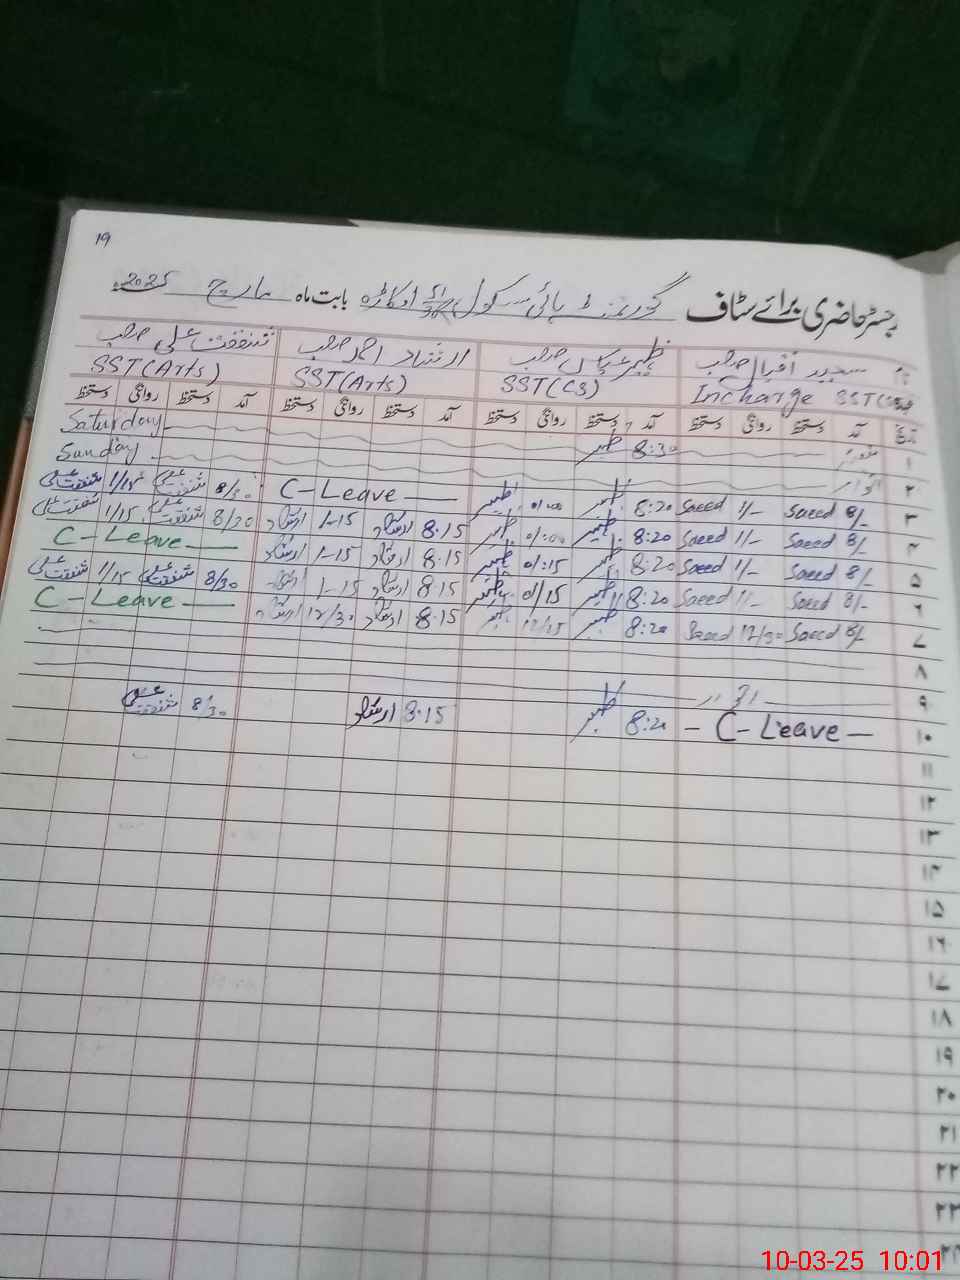 19
رجسٹر حاضری برائے سٹاف گورنمنٹ ہائی سکول اوکاڑہ بابت ماہ مارچ 2025ء
نام سعید اقبال صاحب ظہیر عباس صاحب ارشاد احمد صاحب شفقت علی صاحب
Incharge SST SST(CS) SST(Arts) SST(Arts)
تاریخ آمد دستخط روانگی دستخط آمد دستخط روانگی دستخط آمد دستخط روانگی دستخط آمد دستخط روانگی دستخط
۱ 8:30 ظہیر Saturday
۲ اتوار Sunday
۳ 8/- Saeed 1/- Saeed 8:20 ظہیر ظہیر C-Leave 8/30 شفقت علی 1/15 شفقت علی
۴ 8/- Saeed 1/- Saeed 8:20 ظہیر 01:00 ظہیر 8:15 ارشاد 1-15 ارشاد 8/30 شفقت علی 1/15 شفقت علی
۵ 8/- Saeed 1/- Saeed 8:20 ظہیر 01:15 ظہیر 8:15 ارشاد 1-15 ارشاد C-Leave
۶ 8/- Saeed 1/- Saeed 8:20 ظہیر 01/15 ظہیر 8:15 ارشاد 1-15 ارشاد 8/30 شفقت علی 1/15 شفقت علی
۷ 8/- Saeed 12/30 Saeed 8:20 ظہیر 12/25 ظہیر 8:15 ارشاد 12/30 ارشاد C-Leave
۸
۹ اتوار
۱۰ C-Leave 8:20 ظہیر 8:15 ارشاد 8/30 شفقت علی
۱۱
۱۲
۱۳
۱۴
۱۵
۱۶
۱۷
۱۸
۱۹
۲۰
۲۱
۲۲
۲۳
۲۴
10-03-25 10:01